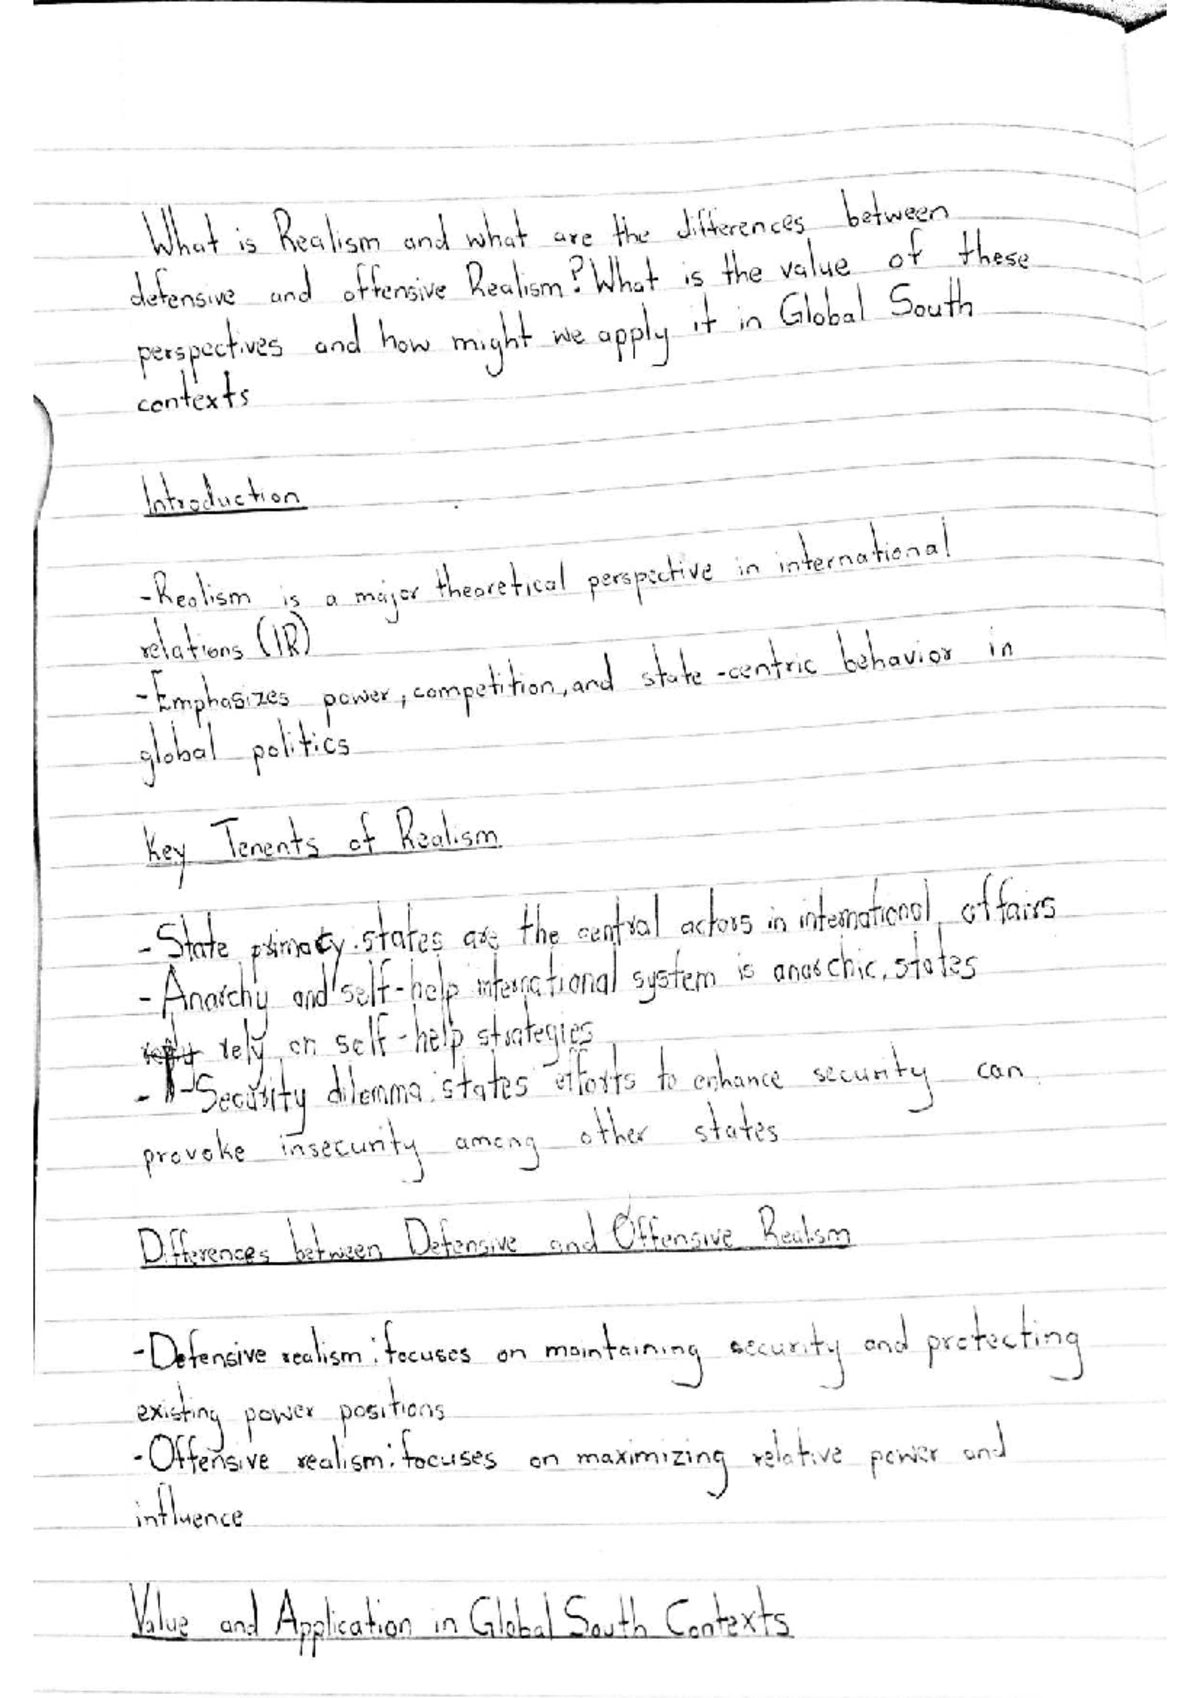 What is Realism and what are the differences between
defensive and offensive Realism? What is the value of these
perspectives and how might we apply it in Global South
contexts
Introduction
-Realism is a major theoretical perspective in international
relations (IR)
-Emphasizes power, competition, and state-centric behavior in
global politics
Key Tenents of Realism
-State primacy: states are the central actors in international affairs
-Anarchy and self-help international system is anarchic, states
rely on self-help strategies
-Security dilemma: states' efforts to enhance security can
provoke insecurity among other states
Differences between Defensive and Offensive Realism
-Defensive realism: focuses on maintaining security and protecting
existing power positions
-Offensive realism: focuses on maximizing relative power and
influence
Value and Application in Global South Contexts